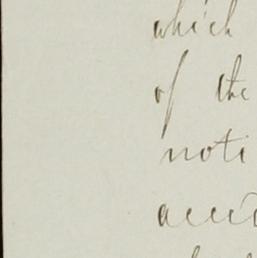 which
of the
noti
acci